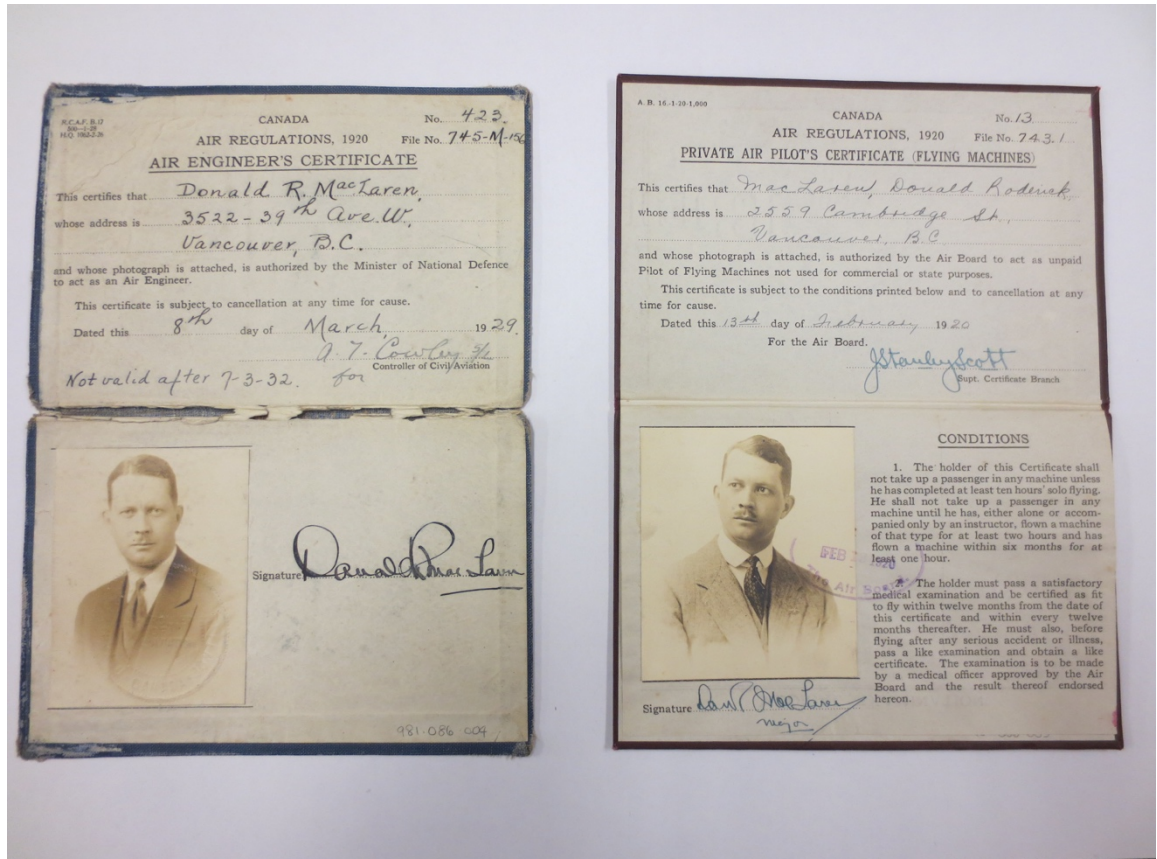 R.C.A.F. B.17
500-1-28
H.Q. 1062-2-26
CANADA
No. 423.
AIR REGULATIONS, 1920
File No. 745-M-156
AIR ENGINEER'S CERTIFICATE
This certifies that Donald R. MacLaren,
whose address is 3522-39th Ave. W.,
Vancouver, B.C.
and whose photograph is attached, is authorized by the Minister of National Defence
to act as an Air Engineer.
This certificate is subject to cancellation at any time for cause.
Dated this 8th day of March, 1929.
A. T. Cowley S/L
Controller of Civil Aviation
Not valid after 7-3-32. for
Signature Donald R. MacLaren
981.086 004
A. B. 16.-1-20-1,000
CANADA
No. 13
AIR REGULATIONS, 1920
File No. 743.1
PRIVATE AIR PILOT'S CERTIFICATE (FLYING MACHINES)
This certifies that MacLaren, Donald Roderick
whose address is 2559 Cambridge St.,
Vancouver, B.C
and whose photograph is attached, is authorized by the Air Board to act as unpaid
Pilot of Flying Machines not used for commercial or state purposes.
This certificate is subject to the conditions printed below and to cancellation at any
time for cause.
Dated this 13th day of February 1920
For the Air Board.
J Stanley Scott
Supt. Certificate Branch
CONDITIONS
1. The holder of this Certificate shall
not take up a passenger in any machine unless
he has completed at least ten hours' solo flying.
He shall not take up a passenger in any
machine until he has, either alone or accom-
panied only by an instructor, flown a machine
of that type for at least two hours and has
flown a machine within six months for at
least one hour.
2. The holder must pass a satisfactory
medical examination and be certified as fit
to fly within twelve months from the date of
this certificate and within every twelve
months thereafter. He must also, before
flying after any serious accident or illness,
pass a like examination and obtain a like
certificate. The examination is to be made
by a medical officer approved by the Air
Board and the result thereof endorsed
hereon.
FEB 1920
The Air Board
Signature Don R MacLaren
Major